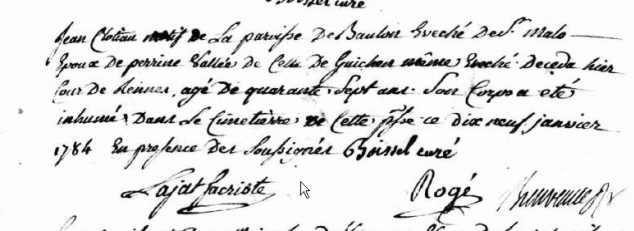 Boissel curé
Jean Cloteau natif de La paroisse De Baulon Eveché De St. Malo
Epoux de perrine Vallée de Celle de Guichen même Evéché Deceda hier
Cour de Rennes, agé De quarante Sept ans Son Corps a eté
inhumé Dans Le Cimetierre De Cette psse ce Dix neuf janvier
1784 En presence Des Soussignés Boissel curé
Lajat Sacriste Rogé